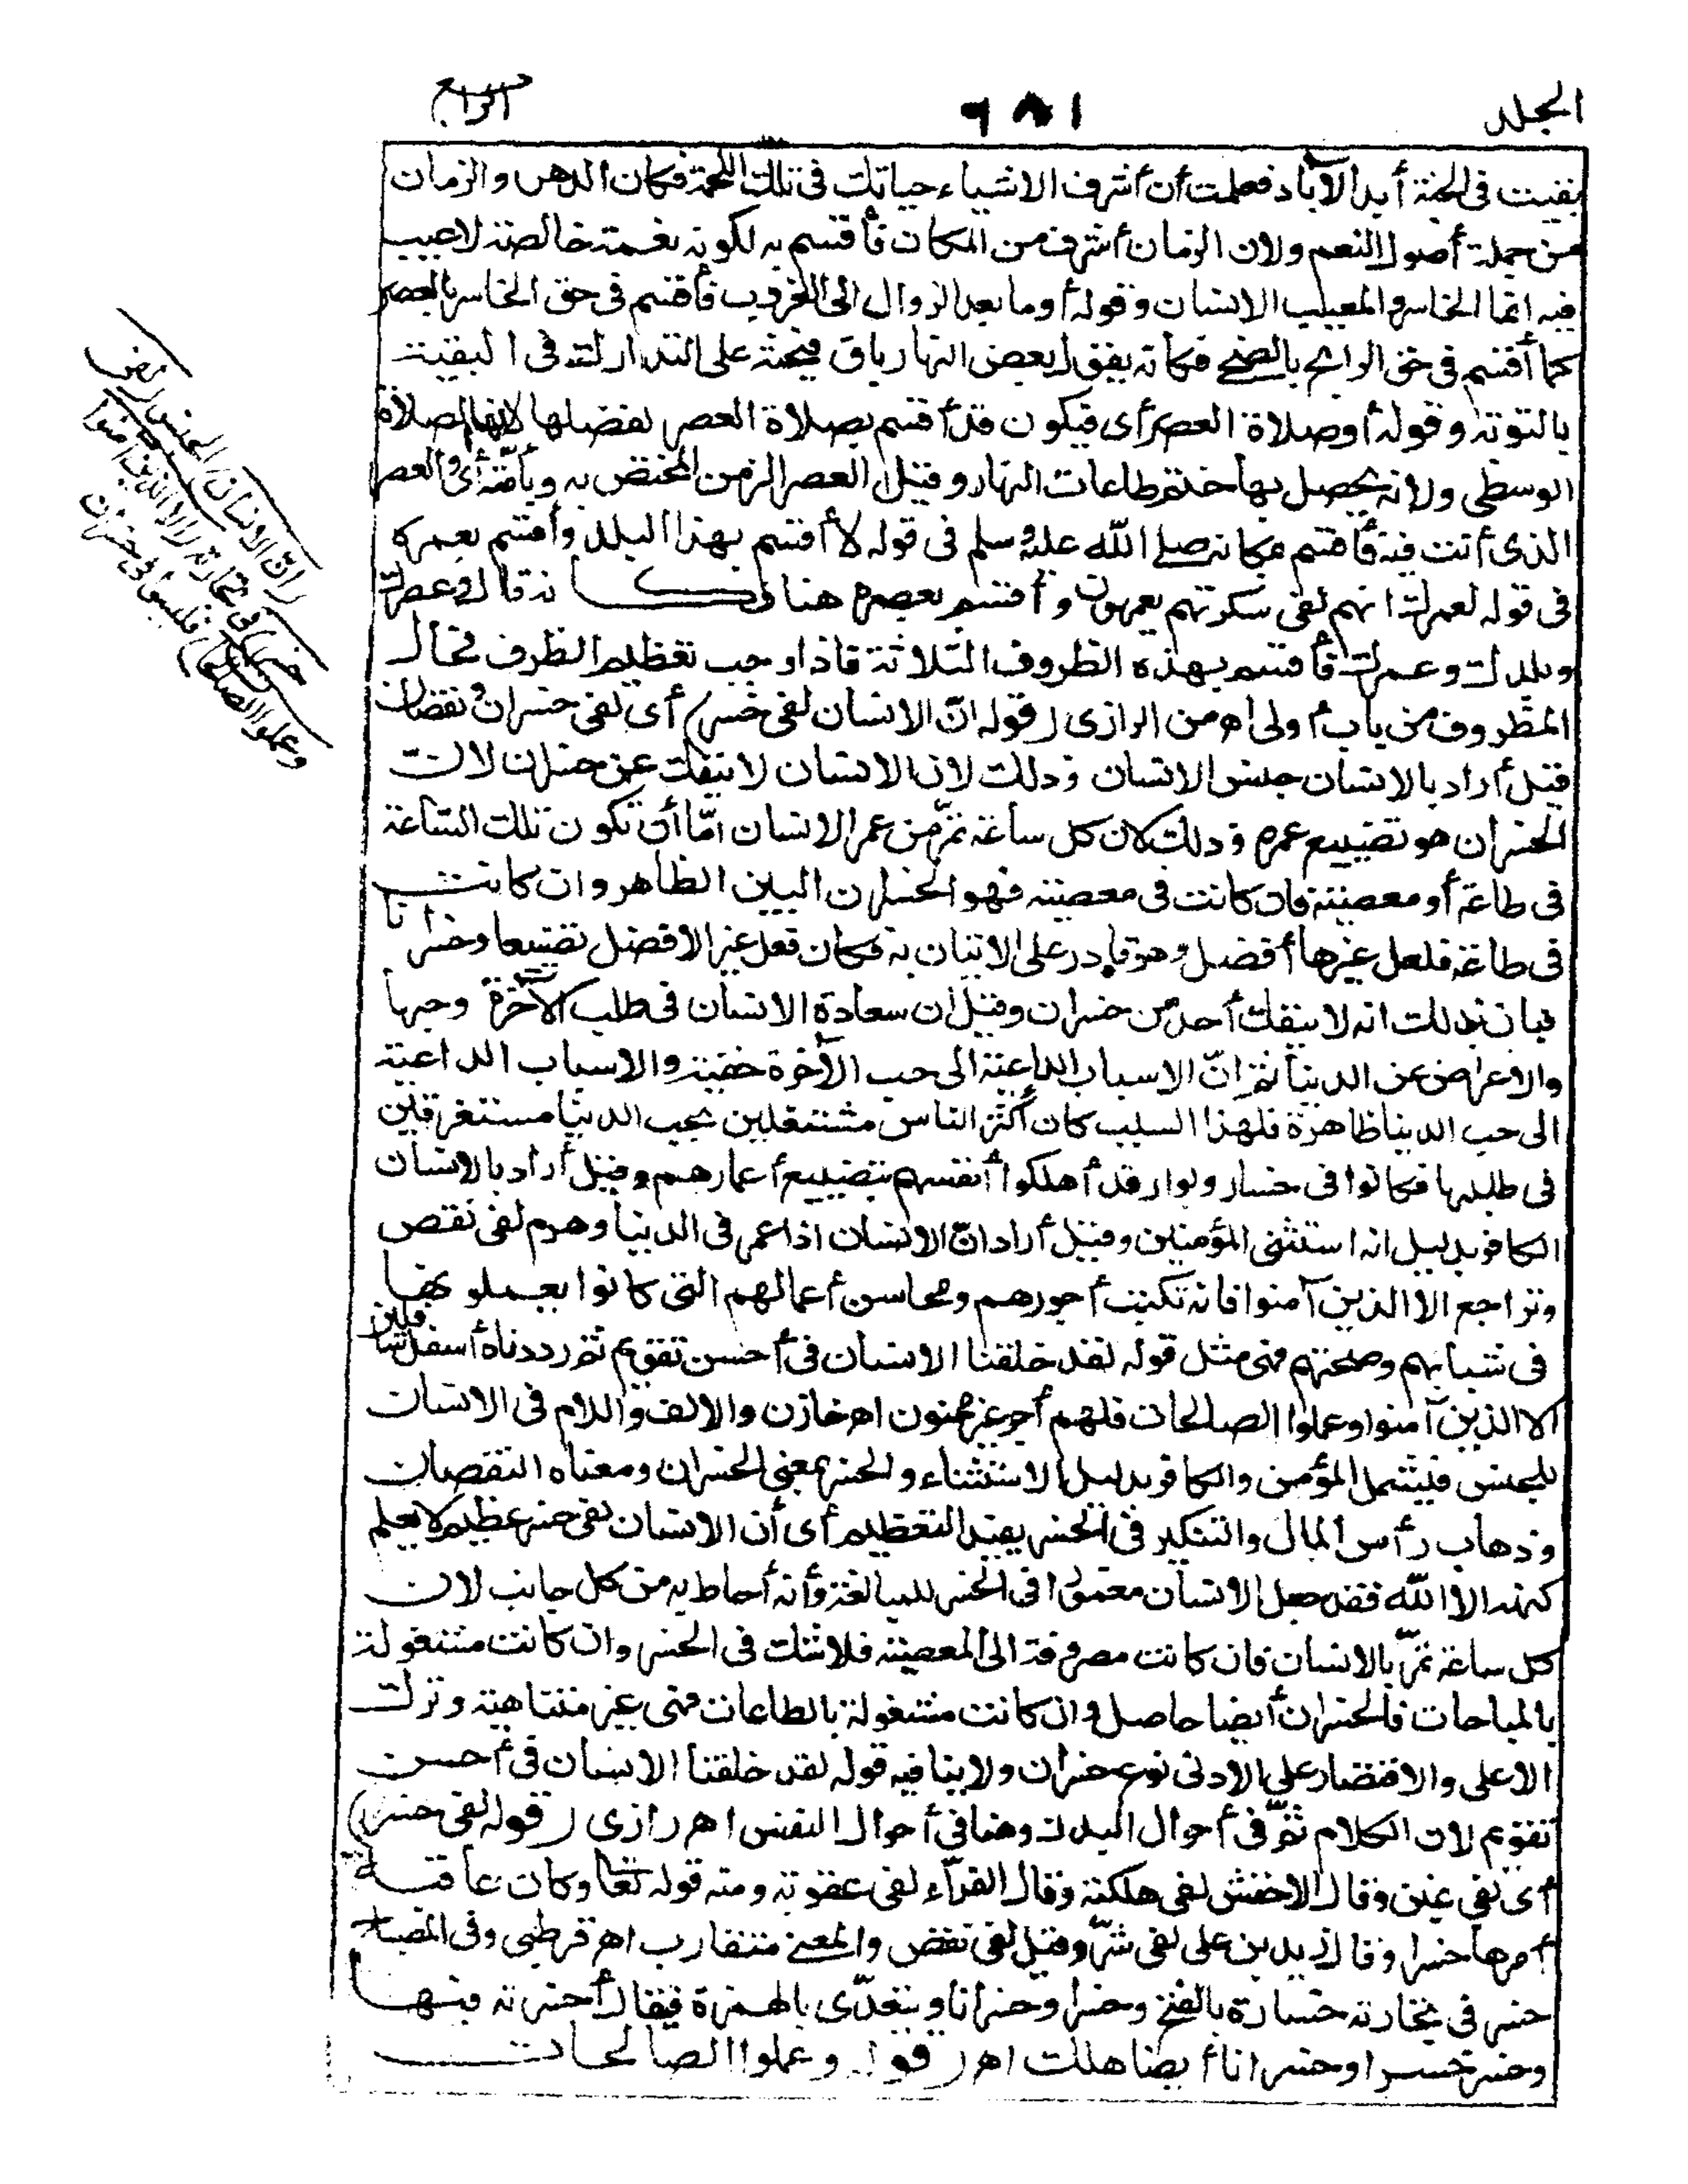 الجلد ٦٨١ الرابع
بقيت في الجنة أبد الآباد فعلمت أن أشرف الاشياء حياتك في تلك اللمحة فكان الدهر والزمان
من جملة أصول النعم ولان الزمان أشرف من المكان فأقسم به لكونه نعمة خالصة لا عيب
فيه انما الخاسر والمعيب الانسان وقوله أو ما بعد الزوال الى الغروب فأقسم في حق الخاسر بالعصر
كما أقسم في حق الرابح بالضحى فكأنه يقول بعض النهار باق فيحثه على التدارك في البقية
بالتوبة وقوله أو صلاة العصر أى فيكون قد أقسم بصلاة العصر لفضلها لانها الصلاة
الوسطى ولانه يحصل بها ختم طاعات النهار وقيل العصر الزمن المختص به وبأمته أى والعصر
الذى أنت فيه فأقسم بمكانه صلى الله عليه وسلم في قوله لا أقسم بهذا البلد وأقسم بعمره
في قوله لعمرك انهم لفى سكرتهم يعمهون وأقسم بعصره هنا وكأنه قال وعصرك
وبلدك وعمرك فأقسم بهذه الظروف الثلاثة فاذا وجب تعظيم الظرف فحال
المظروف من باب أولى اه من الرازى (قوله انّ الانسان لفى خسر) أى لفى خسران ونقصان
قيل أراد بالانسان جنس الانسان وذلك لان الانسان لا ينفك عن خسران لان
الخسران هو تضييع عمره وذلك لان كل ساعة تمرّ من عمر الانسان امّا أن تكون تلك الساعة
في طاعة أو معصية فان كانت في معصية فهو الخسران البين الظاهر وان كانت
في طاعة فلعل غيرها أفضل وهو قادر على الاتيان به فكان فعل غير الافضل تضييعا وخسرانا
فبان بذلك انه لا ينفك أحد من خسران وقيل ان سعادة الانسان في طلب الآخرة وحبها
والاعراض عن الدنيا ثم انّ الاسباب الداعية الى حب الآخرة خفية والاسباب الداعية
الى حب الدنيا ظاهرة فلهذا السبب كان أكثر الناس مشتغلين بحب الدنيا مستغرقين
في طلبها فكانوا في خسار وبوار قد أهلكوا أنفسهم بتضييع أعمارهم وقيل أراد بالانسان
الكافر بدليل انه استثنى المؤمنين وقيل أراد انّ الانسان اذا عمر في الدنيا وهرم لفى نقص
وتراجع الا الذين آمنوا فانه تكتب أجورهم ومحاسن أعمالهم التى كانوا يعملونها
في شبابهم وصحتهم فهى مثل قوله لقد خلقنا الانسان في أحسن تقويم ثم رددناه أسفل سافلين
الا الذين آمنوا وعملوا الصالحات فلهم أجر غير ممنون اه خازن والالف واللام في الانسان
للجنس فيشمل المؤمن والكافر بدليل الاستثناء والخسر بمعنى الخسران ومعناه النقصان
وذهاب رأس المال والتنكير في الخسر يفيد التعظيم أى أن الانسان لفى خسر عظيم لا يعلم
كنهه الا الله فقد جعل الانسان مغمورا في الخسر للمبالغة وأنه أحاط به من كل جانب لان
كل ساعة تمرّ بالانسان فان كانت مصروفة الى المعصية فلا شك في الخسر وان كانت مشغولة
بالمباحات فالخسران أيضا حاصل وان كانت مشغولة بالطاعات فهى غير متناهية وترك
الاعلى والاقتصار على الادنى نوع خسران ولا ينافيه قوله لقد خلقنا الانسان في أحسن
تقويم لان الكلام ثمّ في أحوال البدن وهنا في أحوال النفس اه رازى (قوله لفى خسر)
أى لفى غبن وقال الاخفش لفى هلكة وقال الفرّاء لفى عقوبة ومنه قوله تعالى وكان عاقبة
أمرها خسرا وقال زيد بن على لفى شرّ وقيل لفى نقص والمعنى متقارب اه قرطبى وفى المصباح
خسر في تجارته خسارة بالفتح وخسرا وخسرانا ويتعدّى بالهمزة فيقال أخسرته فيها
وخسر خسرا وخسرانا أيضا هلك اه (قوله وعملوا الصالحات
(انّ الانسان) الجنس (لفى
خسر) في تجارته (الا الذين آمنوا
وعملوا الصالحات) فليسوا في خسران